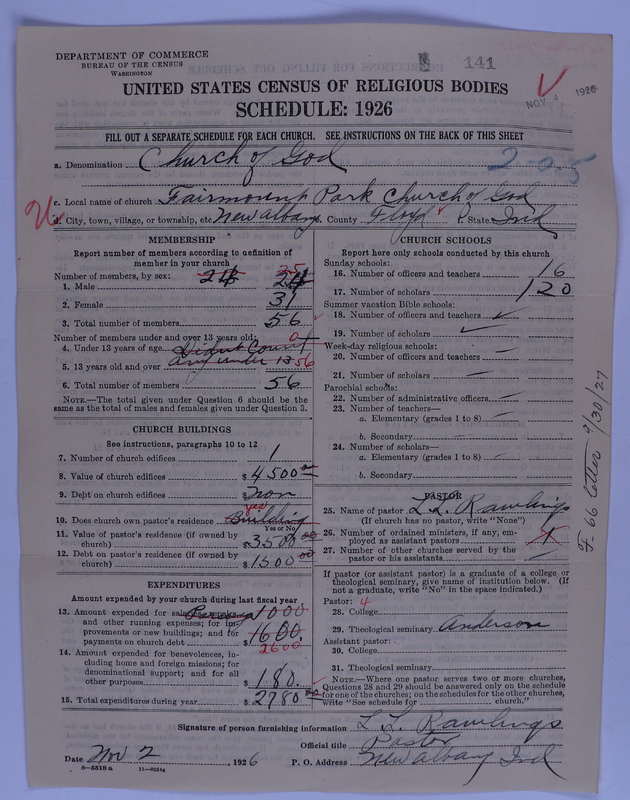 DEPARTMENT OF COMMERCE
BUREAU OF THE CENSUS
WASHINGTON
141
NOV 1926
UNITED STATES CENSUS OF RELIGIOUS BODIES
SCHEDULE: 1926
FILL OUT A SEPARATE SCHEDULE FOR EACH CHURCH. SEE INSTRUCTIONS ON THE BACK OF THIS SHEET
a. Denomination Church of God
2-0-5
c. Local name of church Fairmount Park Church of God
d. City, town, village, or township, etc. New Albany. County Floyd f. State Ind
MEMBERSHIP
Report number of members according to definition of
member in your church
Number of members, by sex: 25
1. Male 24
2. Female 31
3. Total number of members 56
Number of members under and over 13 years old: 0
4. Under 13 years of age Didnt Count
5. 13 years old and over any under 13 56
6. Total number of members 56
NOTE.—The total given under Question 6 should be the
same as the total of males and females given under Question 3.
CHURCH BUILDINGS
See instructions, paragraphs 10 to 12
7. Number of church edifices 1
8. Value of church edifices $4500
9. Debt on church edifices $non
yes
10. Does church own pastor's residence Building
Yes or No
11. Value of pastor's residence (if owned by
church) $3500 00
12. Debt on pastor's residence (if owned by
church) $1500 00
EXPENDITURES
Amount expended by church during last fiscal year
13. Amount expended for salaries, repairs, 1000
and other running expenses; for im-
provements or new buildings; and for
payments on church debt $1600.
2600
14. Amount expended for benevolences, in-
cluding home and foreign missions; for
denominational support; and for all
other purposes $180.
15. Total expenditures during year $2780
CHURCH SCHOOLS
Report here only schools conducted by this church
Sunday schools:
16. Number of officers and teachers 16
17. Number of scholars 120
Summer vacation Bible schools:
18. Number of officers and teachers
19. Number of scholars
Week-day religious schools:
20. Number of officers and teachers
21. Number of scholars
Parochial schools:
22. Number of administrative officers
23. Number of teachers—
a. Elementary (grades 1 to 8)
b. Secondary
24. Number of scholars—
a. Elementary (grades 1 to 8)
b. Secondary
PASTOR
25. Name of pastor L. L. Rawlings
(If church has no pastor, write "None")
26. Number of ordained ministers, if any, em-
ployed as assistant pastors 1
27. Number of other churches served by the
pastor or his assistants
If pastor (or assistant pastor) is a graduate of a college or
theological seminary, give name of institution below. (If
not a graduate, write "No" in the space indicated.)
Pastor: 4
28. College
29. Theological seminary Anderson
Assistant pastor:
30. College
31. Theological seminary
NOTE.—Where one pastor serves two or more churches,
Questions 28 and 29 should be answered only on the schedule
for one of the churches; on the schedules for the other churches,
write "See schedule for church."
Signature of person furnishing information L. L. Rawlings
Official title Pastor
Date Nov 2, 1926 P. O. Address New Albany Ind
8—5518 a
F. 66 letter 9/30/27